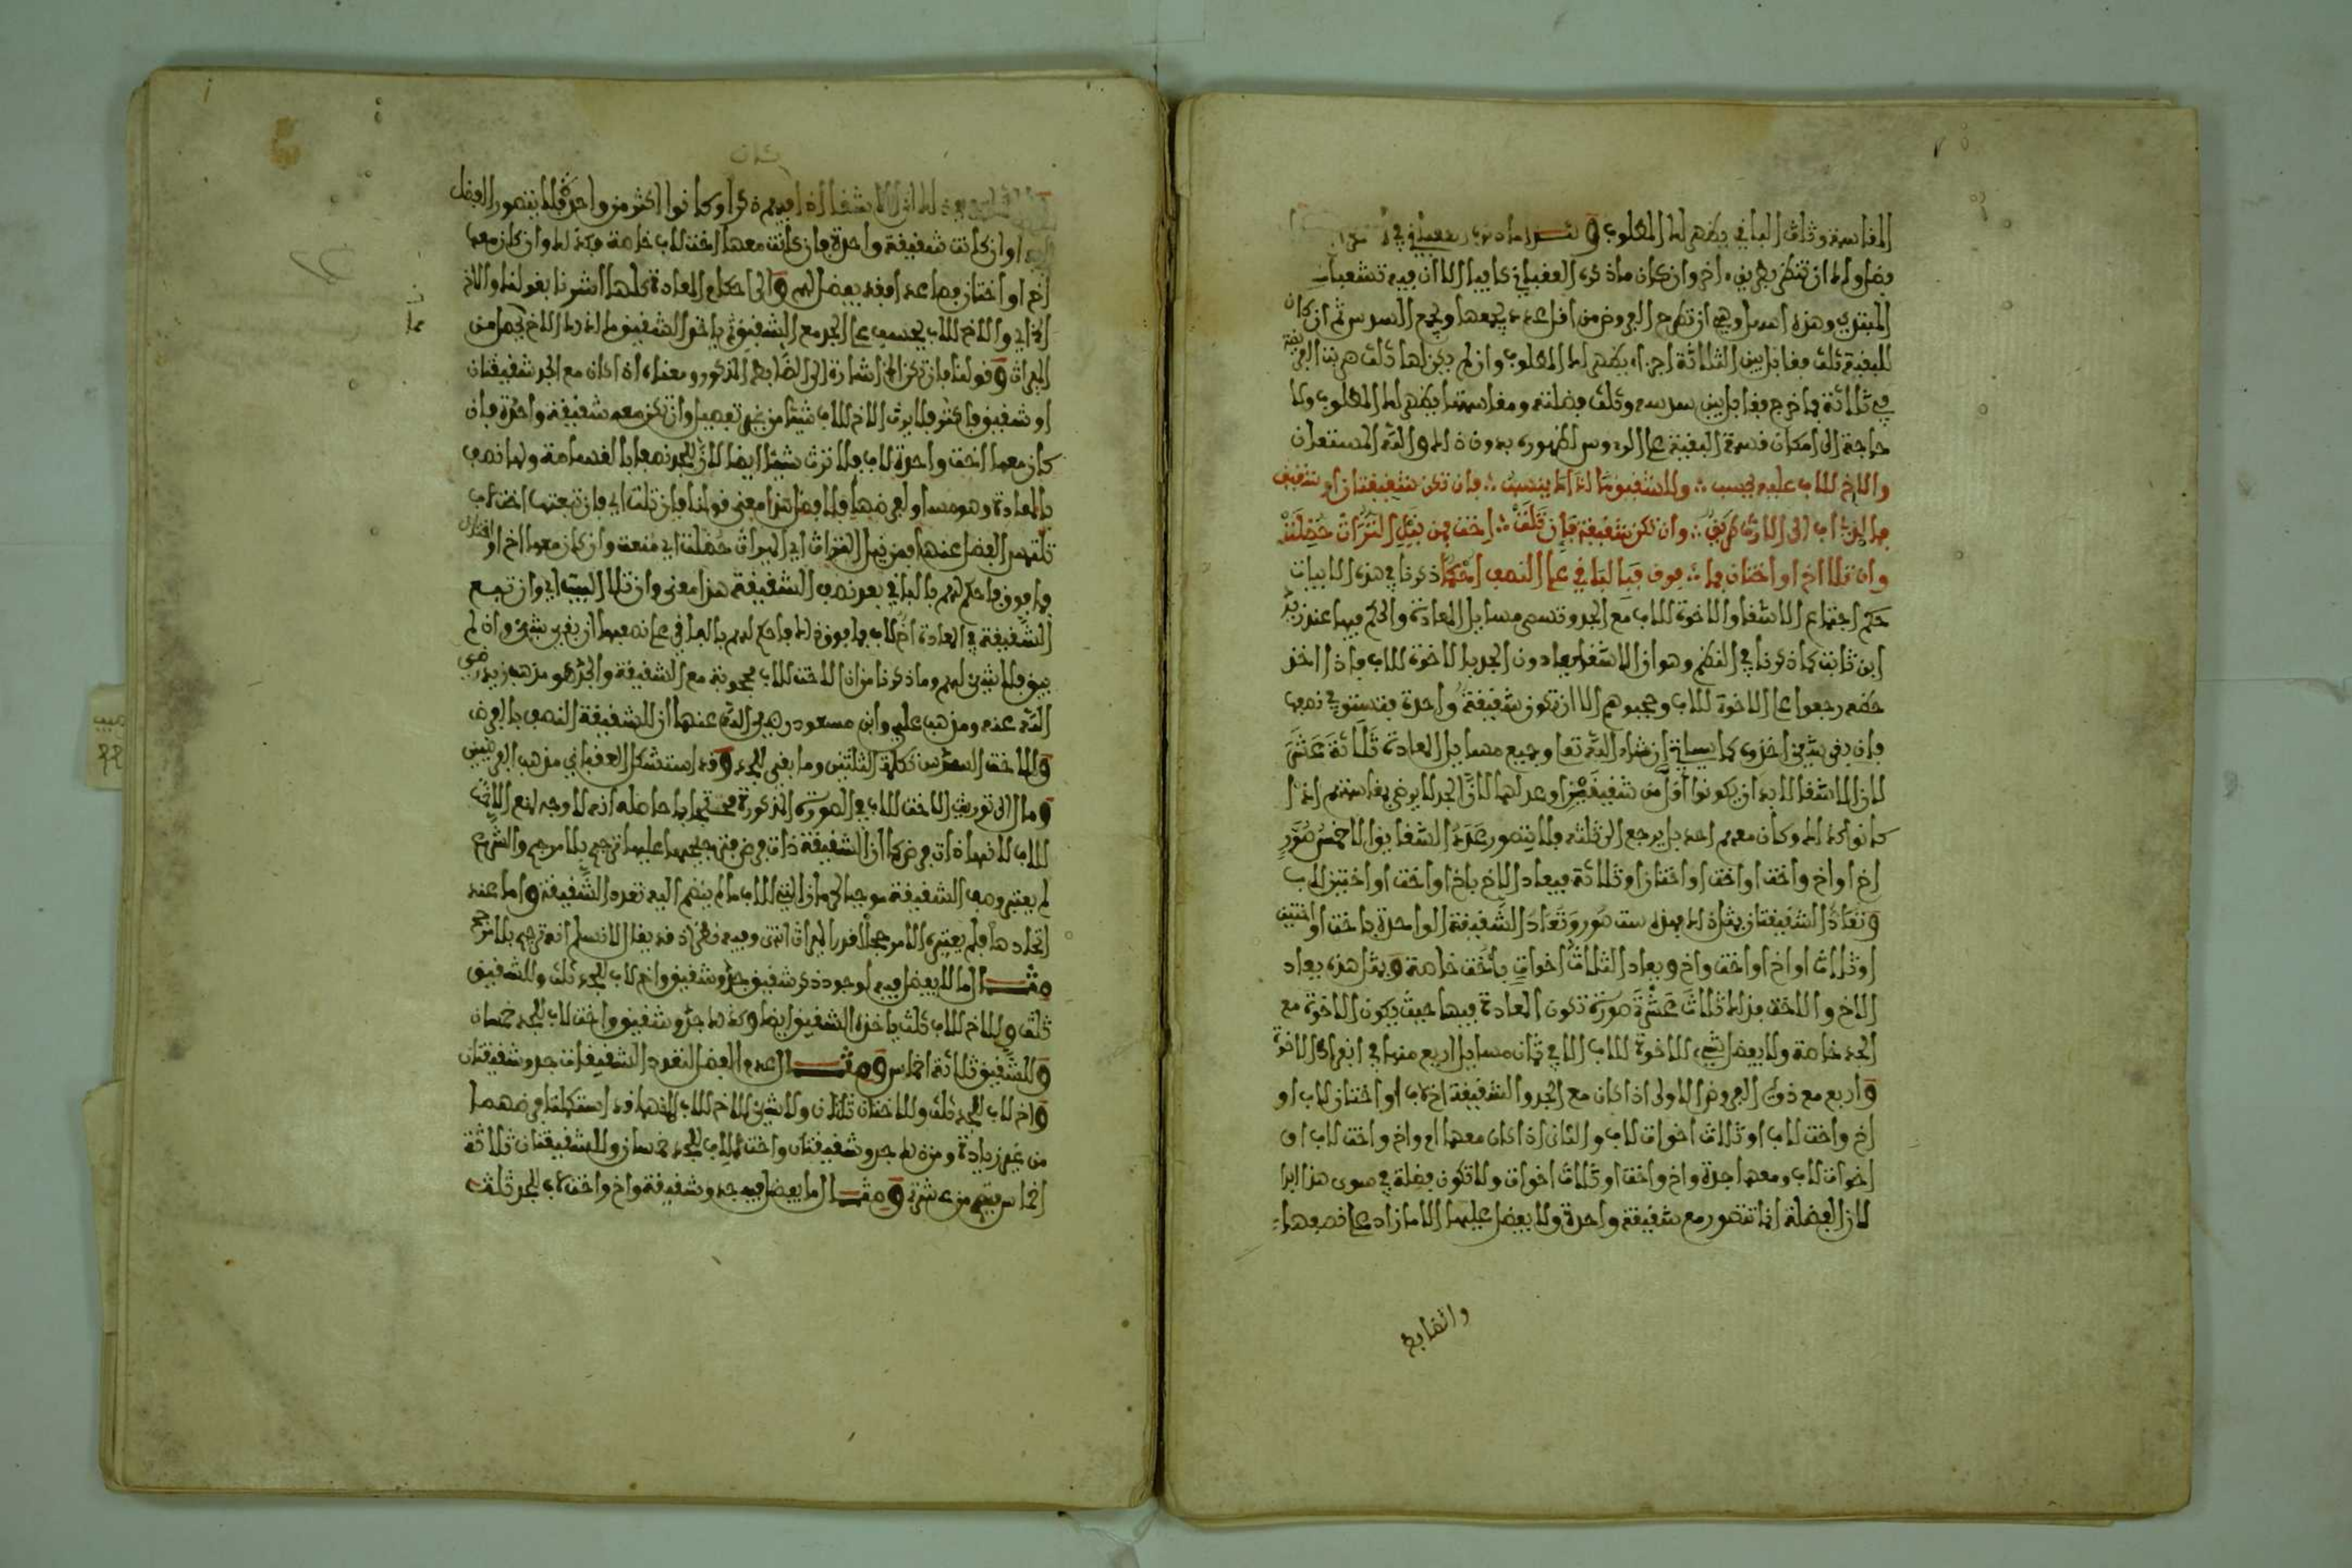 المقاسمة وثلث الباقي يظهر لك المطلوب و
بضاولك ان تنظر بطريق اخر وان كان ماذكره العقباني كافيا الا ان فيه تشعبا
المبتدي وهذه اسهل وهي ان تطرح الفروض من اقل عدد يجمعها ويجمع السدس ثم ان كان
للبقية ثلث فقابل بين الثلاثة اجزاء يظهر لك المطلوب وان لم يكن لها ثلث ضربت الفريضة
في ثلاثة فما خرج فقابل بين سدسه وثلث فضلته ومقاسمتها يظهر لك المطلوب ولا
حاجة الى امكان قسمة البقية على الرءوس لظهوره بدون ذلك والله المستعان
والاخ للاب عليه يحسب ∴ وللشقيق مالذا ينسب ∴ فان تكن شقيقتان او شقيق
فما لذي اب الى الارث طريق ∴ وان تكن شقيقة فان تلت ∴ اخت فمن نيل التراث حظلت
وان تلا اخ او اختان فما ∴ يوف فبالباقي على النصف احكما ذكرنا في هذه الابيات
حكم اجتماع الاشقا والاخوة للاب مع الجد وتسمى مسايل المعادة والحكم فيها عند زيد
ابن ثابت كما ذكرنا في النظم وهو ان الاشقا يعادون الجد بالاخوة للاب فاذا اخذ
حظه رجعوا على الاخوة للاب وحجبوهم الا ان تكون شقيقة واحدة فتستوفي نصف
فان بقي شيئ اخذوه كما سياتي ان شاء الله تعا وجميع مسايل المعادة ثلاثة عشر
لان الاشقا لا بد ان يكونوا اقل من شقيقين او عدلهما لان الجد لا يرضى بمقاسمتهم اذا
كانوا كذلك وكان معهم احد بل يرجع الى ثلثه ولا يتصور عدد الاشقا بوالا خمس صور
اخ او اخ واخت او اخت او اختان او ثلاثة فيعاد الاخ باخ او اخت او اختين لاب
وتعاد الشقيقتان بمثل ذلك بهذه ست صور وتعاد الشقيقة الواحدة باخت او اختين
او ثلاث او اخ او اخت واخ ويعاد الثلاث اخوات باخت خاصة وبمثل هذه يعاد
الاخ والاخت فذلك ثلاث عشرة صورة تكون المعادة فيها حيث يكون الاخوة مع
الجد خاصة ولا يفضل شيء للاخوة للاب الا في ثمان مسايل اربع منها في انفراد الاخوة
واربع مع ذوي الفروض الاولى اذا كان مع الجد والشقيقة اخ لاب او اختان لاب او
اخ واخت لاب او ثلاث اخوات لاب والثاني اذا كان معهما ام واخ واخت لاب او
اخوات لاب ومعهما جدة واخ واخت او ثلاث اخوات ولا تكون فضلة في سوى هذا ابدا
لان الفضلة انما تتصور مع شقيقة واحدة ولا يفضل عليها الا ما زاد على نصفها
والضابط
كان
لان الاشقا اذا فيهم ذكر او كانوا اكثر من واحدة فلا يتصور الفضل
او ان كانت شقيقة واحدة فان كانت معها اخت لاب خاصة فكذلك وان كان معها
اخ او اختان فصاعدا فقد يفضل لهم والى احكام المعادة كلها اشرنا بقولنا والاخ
الخ اي والاخ للاب يحسب على الجد مع الشقيق ثم ياخذ الشقيق ما لذلك الاخ كلها من
الميراث وقولنا فان تكن الخ اشارة الى الضابط المذكور ومعناه اذا كان مع الجد شقيقتان
او شقيق فاكثر فلا يرث الاخ للاب شيئا من غير تفصيل وان تكن معه شقيقة واحدة فان
كان معها اخت واحدة لاب فلا ترث شيئا ايضا لان للجد نصفا بالمقاسمة ولها نصف
بالمعادة وهو مساو لفرضها ولا فضل هذا معنى قولنا فان تلت اي فان تبعتها اخت لاب
تلتمس الفضل عنها فمن نيل التراث اي الميراث حظلت اي منعت وان كان معها اخ او اختان
فما فوق فاحكم لهم بالباقي بعد نصف الشقيقة هذا معنى وان تلا البيت اي وان تبع
الشقيقة في المعادة اخ لاب فما فوق ذلك فاحكم لهم بالباقي على نصفها ان بقي شيئ وان لم
يبق فلا شيئ لهم وما ذكرنا من ان الاخت للاب محجوبة مع الشقيقة والجد هو مذهب زيد رضي
الله عنه ومذهب علي وابن مسعود رضي الله عنهما ان للشقيقة النصف بالفرض
وللاخت السدس تكملة الثلثين وما بقي للجد وقد استشكل العقباني مذهب الفرضيين
ومال الى توريث الاخت للاب في الصورة المذكورة محتجا بما حاصله انه لا وجه لمنع الاخت
للاب لانها ذات فرض كما ان الشقيقة ذات فرض فترجيحها عليها ترجيح بلا مرجح والشرع
لم يعتبر وصف الشقيقة موجبا لحرمان التي للاب ما لم ينضم اليه تعدد الشقيقة واما عند
اتحادها فلم يعتبره الا مرجحا لقدر الميراث انتهى وفيه نظر اذ قد يقال لا نسلم انه ترجيح بلا مرجح
ومثال ما لا يفضل فيه لوجود ذكر شقيق جد وشقيق واخ لاب للجد ثلث وللشقيق
ثلث وللاخ للاب ثلث ياخذه الشقيق ايضا وكذلك جد وشقيق واخت لاب للجد خمسان
وللشقيق ثلاثة اخماس ومثال عدم الفضل لتعدد الشقيقات جد وشقيقتان
واخ لاب للجد ثلث وللاختان ثلثان ولا شيئ للاخ للاب لانهما قد استكملتا فرضهما
من غير زيادة ومن ذلك جد وشقيقتان واخت للاب للجد خمسان وللشقيقتان ثلاثة
اخماس فتصح من عشرة ومثال ما يفضل فيه جد وشقيقة واخ واخت لاب للجد ثلث